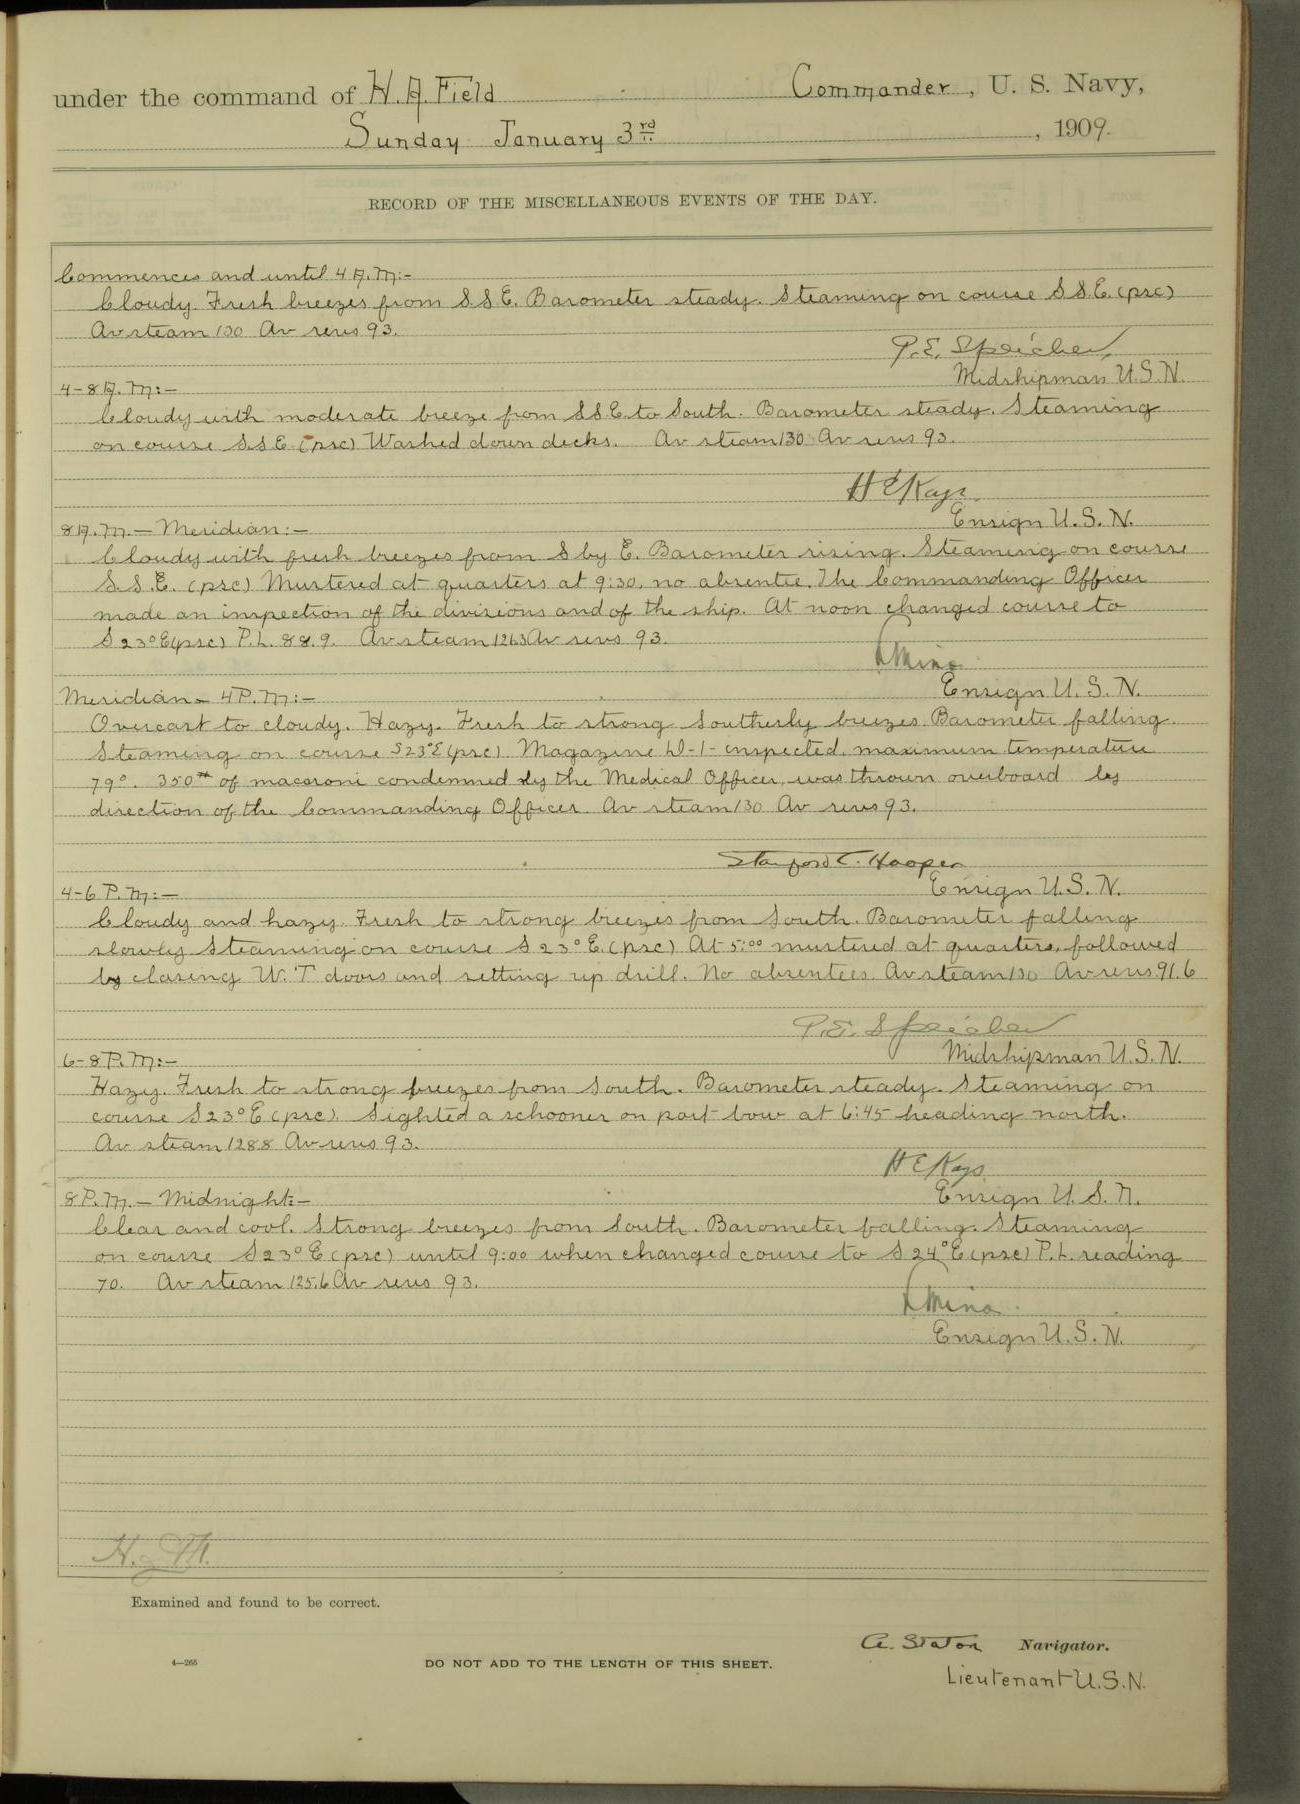 under the command of H. A. Field Commander, U. S. Navy,
Sunday January 3rd, 1909.
RECORD OF THE MISCELLANEOUS EVENTS OF THE DAY.
Commences and until 4 A.M:-
Cloudy. Fresh breezes from S.S.E. Barometer steady. Steaming on course S.S.E. (psc)
Av steam 130 Av revs 93.
P.E. Speicher,
Midshipman U.S.N.
4-8 A.M:-
Cloudy with moderate breeze from S.S.E. to South. Barometer steady. Steaming
on course S.S.E. (psc) Washed down decks. Av steam 130 Av revs 93.
H E Kays.
Ensign U.S.N.
8 A.M.- Meridian:-
Cloudy with fresh breezes from S by E. Barometer rising. Steaming on course
S.S.E. (psc) Mustered at quarters at 9:30, no absentee. The Commanding Officer
made an inspection of the divisions and of the ship. At noon changed course to
S 23° E (psc) P.L. 88.9. Av steam 126.3 Av revs 93.
Ensign U.S.N.
Meridian - 4 P.M:-
Overcast to cloudy. Hazy. Fresh to strong Southerly breezes. Barometer falling.
Steaming on course S 23° E (psc). Magazine D-1- inspected, maximum temperature
79°. 350# of macaroni condemned by the Medical Officer, was thrown overboard by
direction of the Commanding Officer. Av steam 130 Av revs 93.
Stanford C. Hooper
Ensign U.S.N.
4-6 P.M:-
Cloudy and hazy. Fresh to strong breezes from South. Barometer falling
slowly Steaming on course S 23° E. (psc) At 5:00 mustered at quarters, followed
by closing W.T doors and setting up drill. No absentees. Av steam 130 Av revs 91.6
P.E. Speicher
Midshipman U.S.N.
6-8 P.M:-
Hazy. Fresh to strong breezes from South. Barometer steady. Steaming on
course S 23° E (psc). Sighted a schooner on port bow at 6:45 heading north.
Av steam 128.8 Av revs 93.
H E Kays.
Ensign U.S.N.
8 P.M.- Midnight:-
Clear and cool. Strong breezes from South. Barometer falling. Steaming
on course S 23° E (psc) until 9:00 when changed course to S 24° E (psc) P.L. reading
70. Av steam 125.6 Av revs 93.
Ensign U.S.N.
Examined and found to be correct.
A. Staton Navigator.
4—265 DO NOT ADD TO THE LENGTH OF THIS SHEET.
Lieutenant U.S.N.